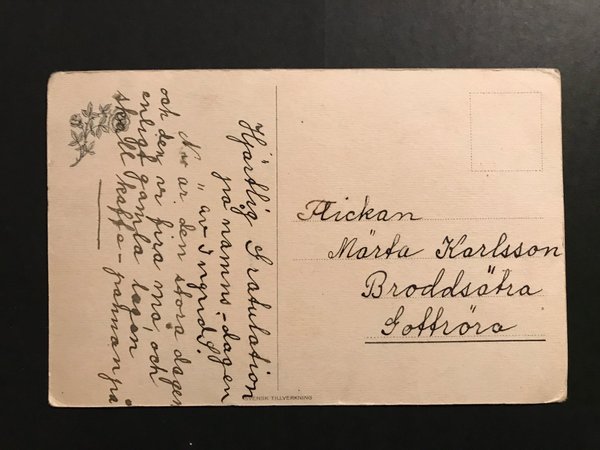 Hjärtlig Gratulation
på namns-dagen
" av Ingrid.
Nu är den stora dagen
och den vi fira må, och
enligt gamla lagen
skall kaffe-pannan på
Flickan
Märta Karlsson
Broddsätra
Gottröra
SVENSK TILLVERKNING